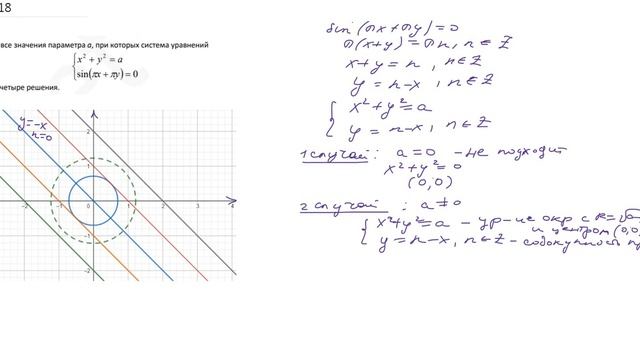 18
все значения параметра a, при которых система уравнений
x² + y² = a
sin(πx + πy) = 0
четыре решения.
y=-x
n=0
sin(πx+πy)=0
π(x+y)=πn, n∈Z
x+y=n, n∈Z
y=n-x, n∈Z
x²+y²=a
y=n-x, n∈Z
1 случай: a=0 - не подходит
x²+y²=0
(0,0)
2 случай: a≠0
x²+y²=a - ур-ие окр с R=√a
и центром (0,0
y=n-x, n∈Z - совокупность пр
2
1
-1
-2
-3 -2 -1 0 1 2 3 4